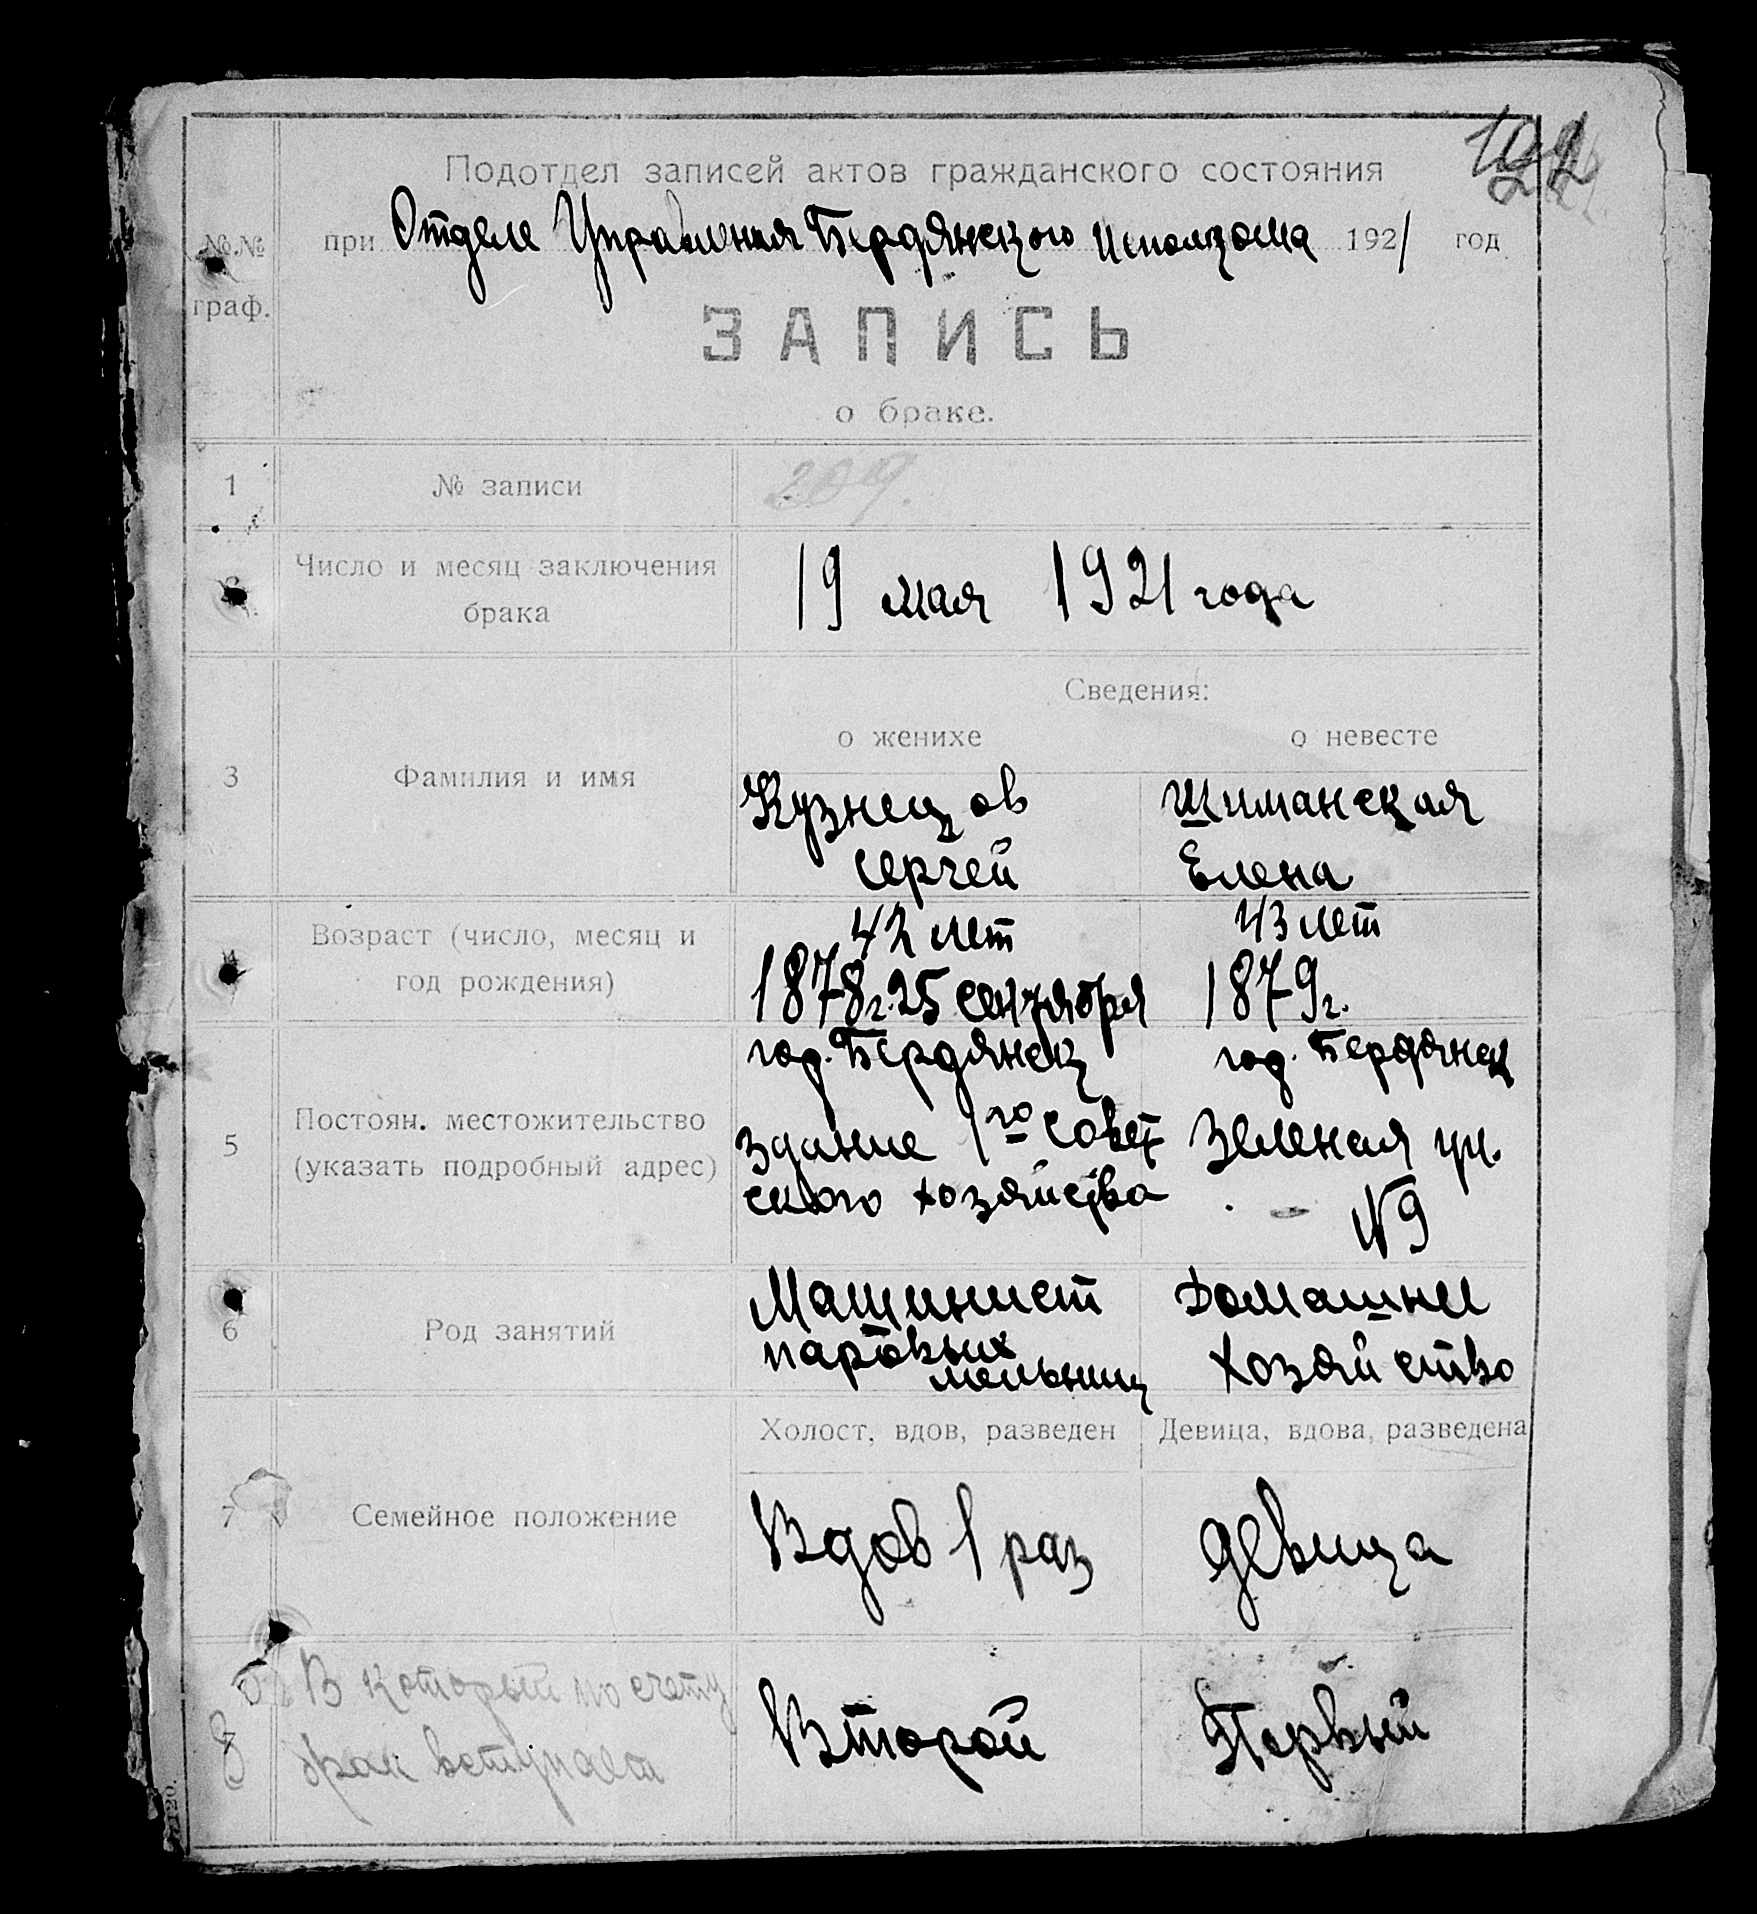 Подотдел записей актов гражданского состояния
№№ при Отделе Управления Бердянского Исполкома 1921 год
граф.
ЗАПИСЬ
о браке.
1 № записи 209.
Число и месяц заключения
брака
19 мая 1921 года
Сведения:
о женихе о невесте
3 Фамилия и имя
Кузнецов Шиманская
Сергей Елена
4 Возраст (число, месяц и
год рождения)
42 лет 43 лет
1878 г. 25 сентября 1879 г.
5 Постоян. местожительство
(указать подробный адрес)
гор. Бердянск гор. Бердянск
здание 1го Совет Зеленая ул.
ского хозяйства №9
6 Род занятий
Машинист Домашнее
паровых хозяйство
мельниц
Холост, вдов, разведен Девица, вдова, разведена
7 Семейное положение
Вдов 1 раз девица
8 В который по счету
брак вступает
Второй Первый